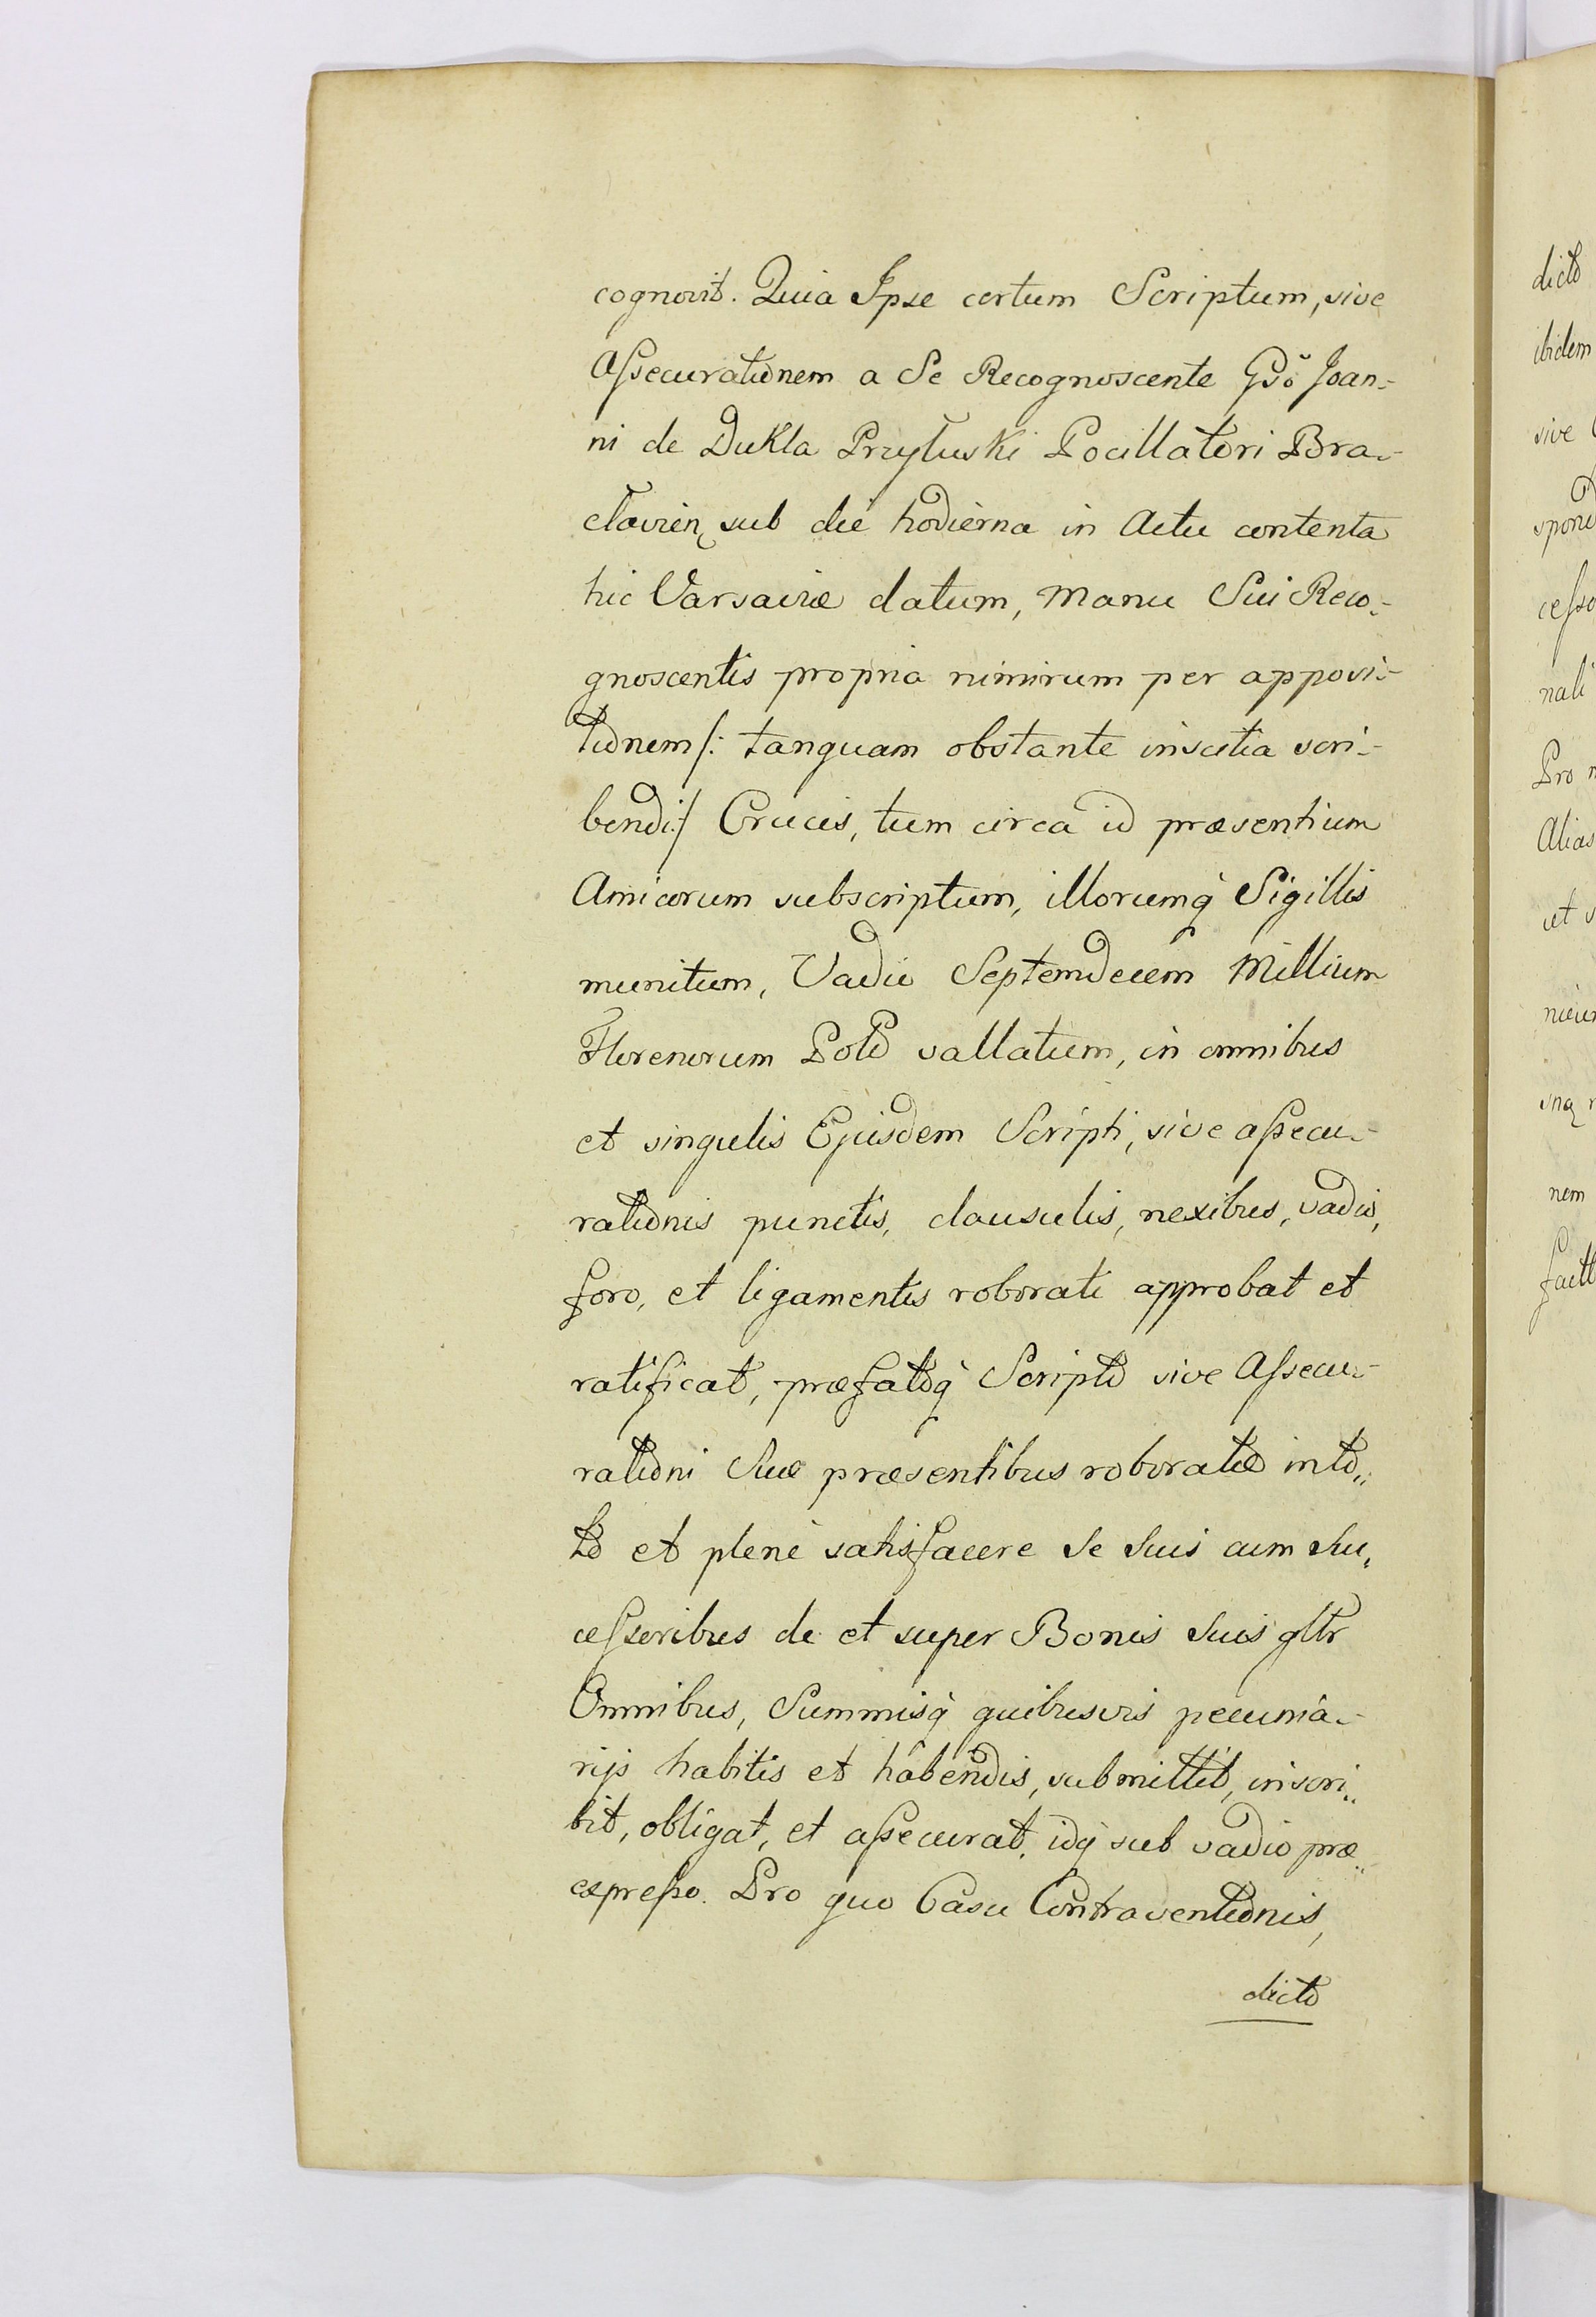 cognovit. Quia Ipse certum Scriptum, sive
Assecurationem a Se Recognoscente Gsō Joan-
ni de Dukla Przyłuski Pocillatori Bra-
claviēn sub die hodierna in Actu contenta
hic Varsaviæ datum, manu Sui Reco-
gnoscentis propria nimirum per apposi-
tionem /: tanquam obstante inscitia scri-
bendi :/ Crucis, tum circa id præsentium
Amicorum subscriptum, illorumq̀ Sigillis
munitum, Vadii Septemdecem Millium
Florenorum Polo vallatum, in omnibus
et singulis Ejusdem Scripti, sive assecu-
rationis punctis, clausulis, nexibus, vadiis,
foro, et ligamentis roborati approbat et
ratificat, præfatoq̀ Scripto sive Assecu-
rationi Suæ præsentibus roboratæ in to-
to et plene satisfacere Se Suis cum Su-
cessoribus de et super Bonis Suis gltr
Omnibus, Summisq̀ quibusvis pecunia-
rijs habitis et habendis, submittit, inscri-
bit, obligat, et assecurat, idq̀ sub vadio præ-
expresso. Pro quo Casu Contraventionis,
dicto
dicto
ibidem
sive
nali
Pro
Alias
et
nem